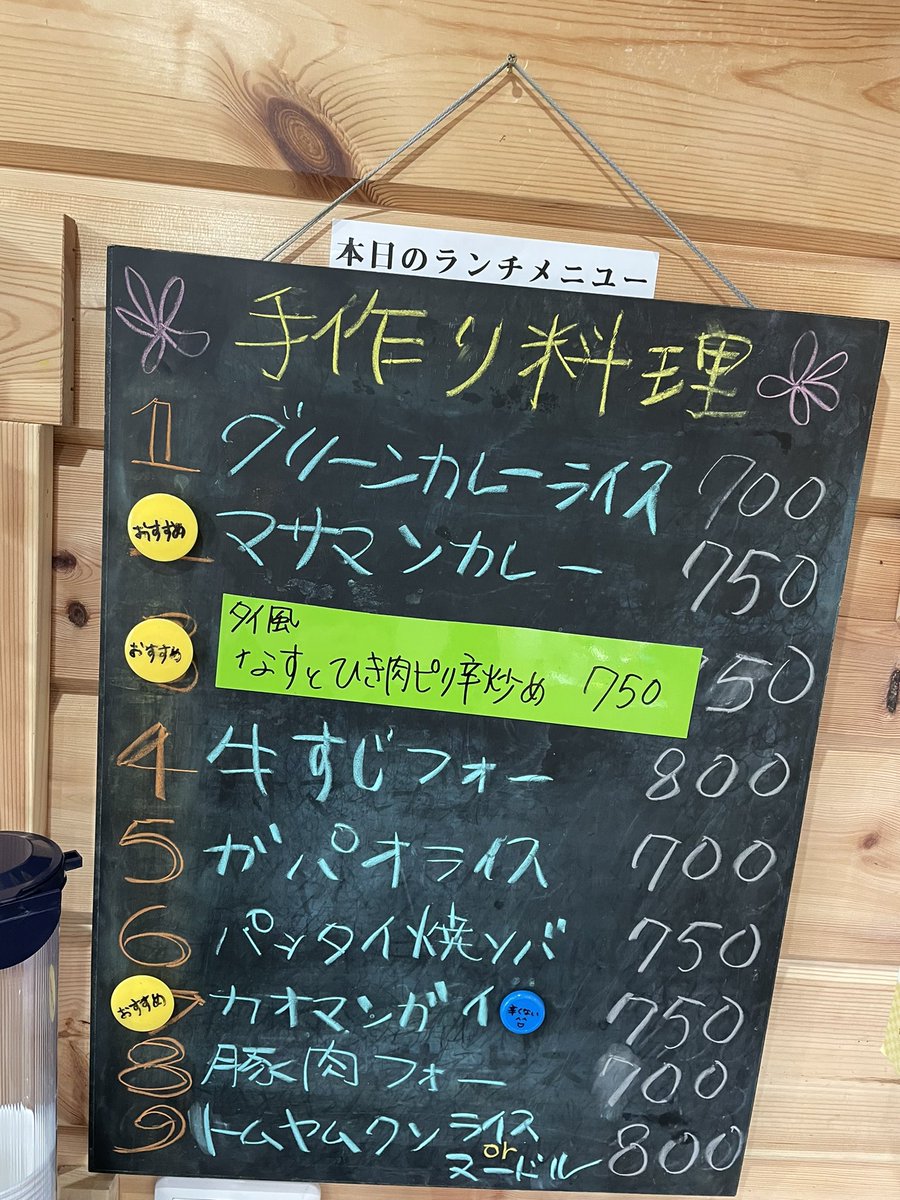 本日のランチメニュー
手作り料理
1 グリーンカレーライス 700
おすすめ マサマンカレー 750
おすすめ 3 タイ風
なすとひき肉ピリ辛炒め 750 750
4 牛すじフォー 800
5 ガパオライス 700
6 パッタイ焼ソバ 750
おすすめ 7 カオマンガイ 辛くない 750
8 豚肉フォー 700
9 トムヤムクン ライス
or
ヌードル 800